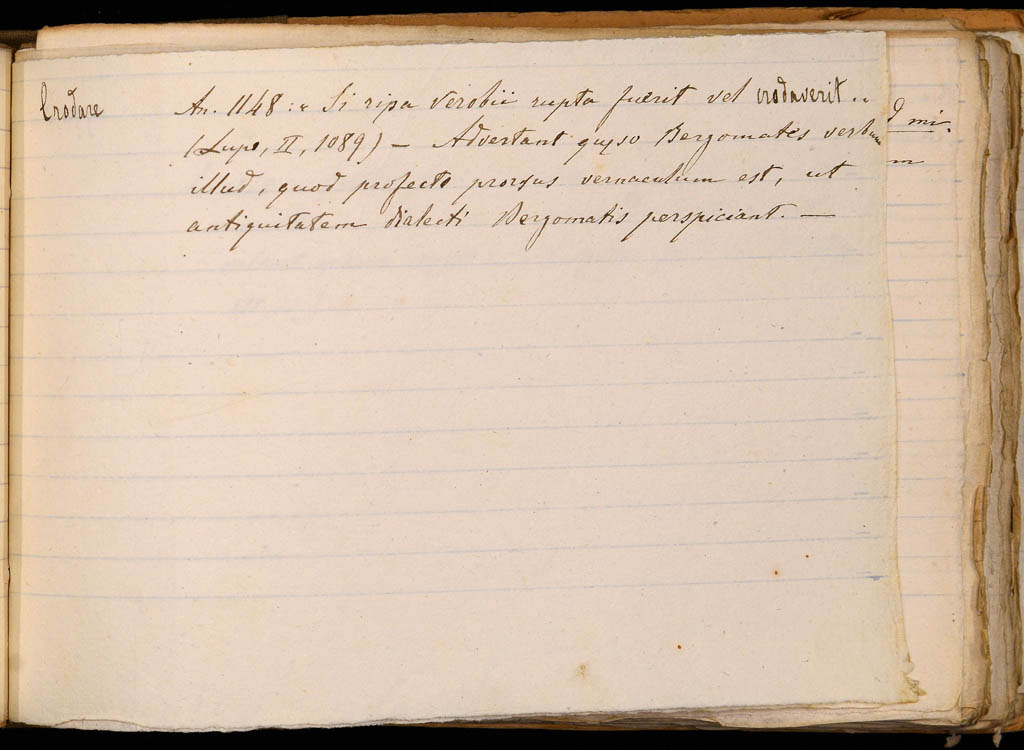 Crodare
An. 1148: « Si ripa Verobii rupta fuerit vel crodaverit ..
(Lupo, II, 1089) — Advertant quęso Bergomates verbum
illud, quod profecto prorsus vernaculum est, ut
antiquitatem dialecti Bergomatis perspiciant. —
mi-
m